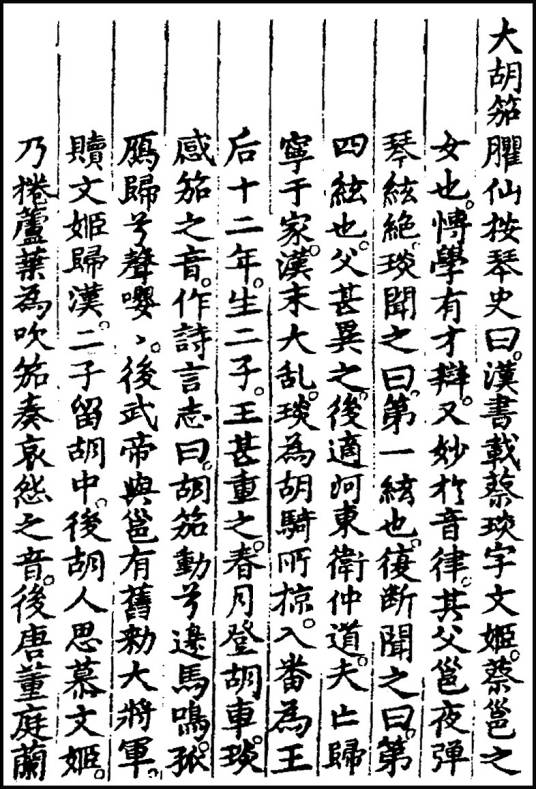 大胡笳臞仙按琴史曰。漢書載蔡琰字文姬。蔡邕之
女也。愽學有才辯。又妙於音律。其父邕夜弹
琴絃絶。琰聞之曰。第一絃也。復断聞之曰。第
四絃也。父甚異之。後適河東衛仲道。夫亡歸
寧于家。漢末大乱。琰為胡騎所掠。入畨為王
后十二年。生二子。王甚重之。春月登胡車。琰
感笳之音。作詩言志曰。胡笳動兮邊馬鳴。孤
鴈歸兮聲嚶〻。後武帝與邕有舊勑大將軍。
贖文姬歸漢。二子留胡中。後胡人思慕文姬。
乃捲蘆葉為吹笳奏哀怨之音。後唐董庭蘭